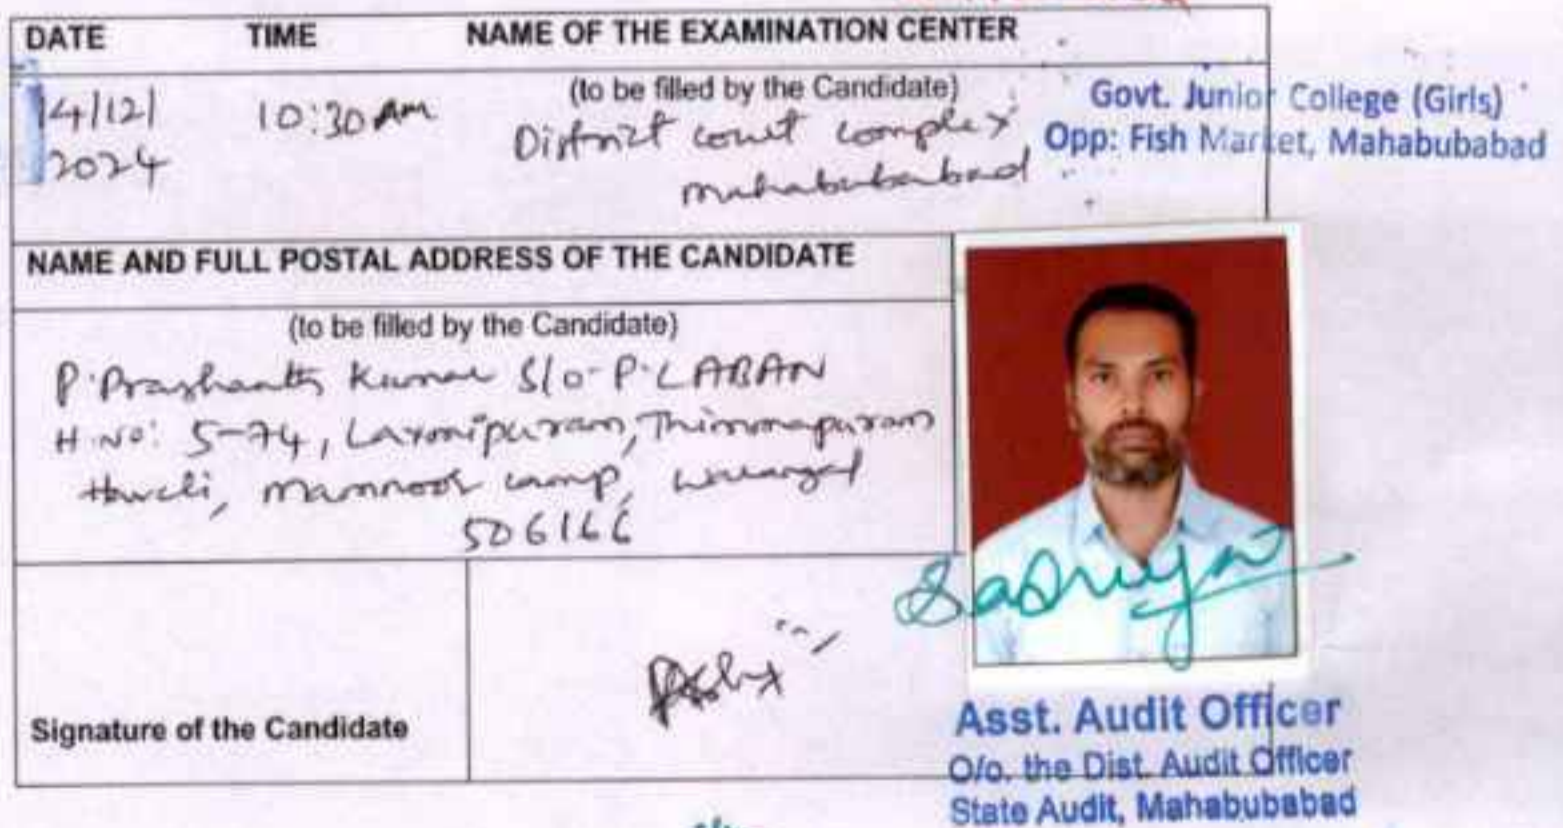 DATE TIME NAME OF THE EXAMINATION CENTER
(to be filled by the Candidate)
14/12/ 10:30 AM District court complex
2024 mahabubabad
Govt. Junior College (Girls)
Opp: Fish Market, Mahabubabad
NAME AND FULL POSTAL ADDRESS OF THE CANDIDATE
(to be filled by the Candidate)
P. Prashanth Kumar S/o- P. LABAN
H.No: 5-74, Laxmipuram, Thimmapuram
Haveli, mamnoor camp, warangal
506166
Signature of the Candidate
Asst. Audit Officer
O/o. the Dist. Audit Officer
State Audit, Mahabubabad